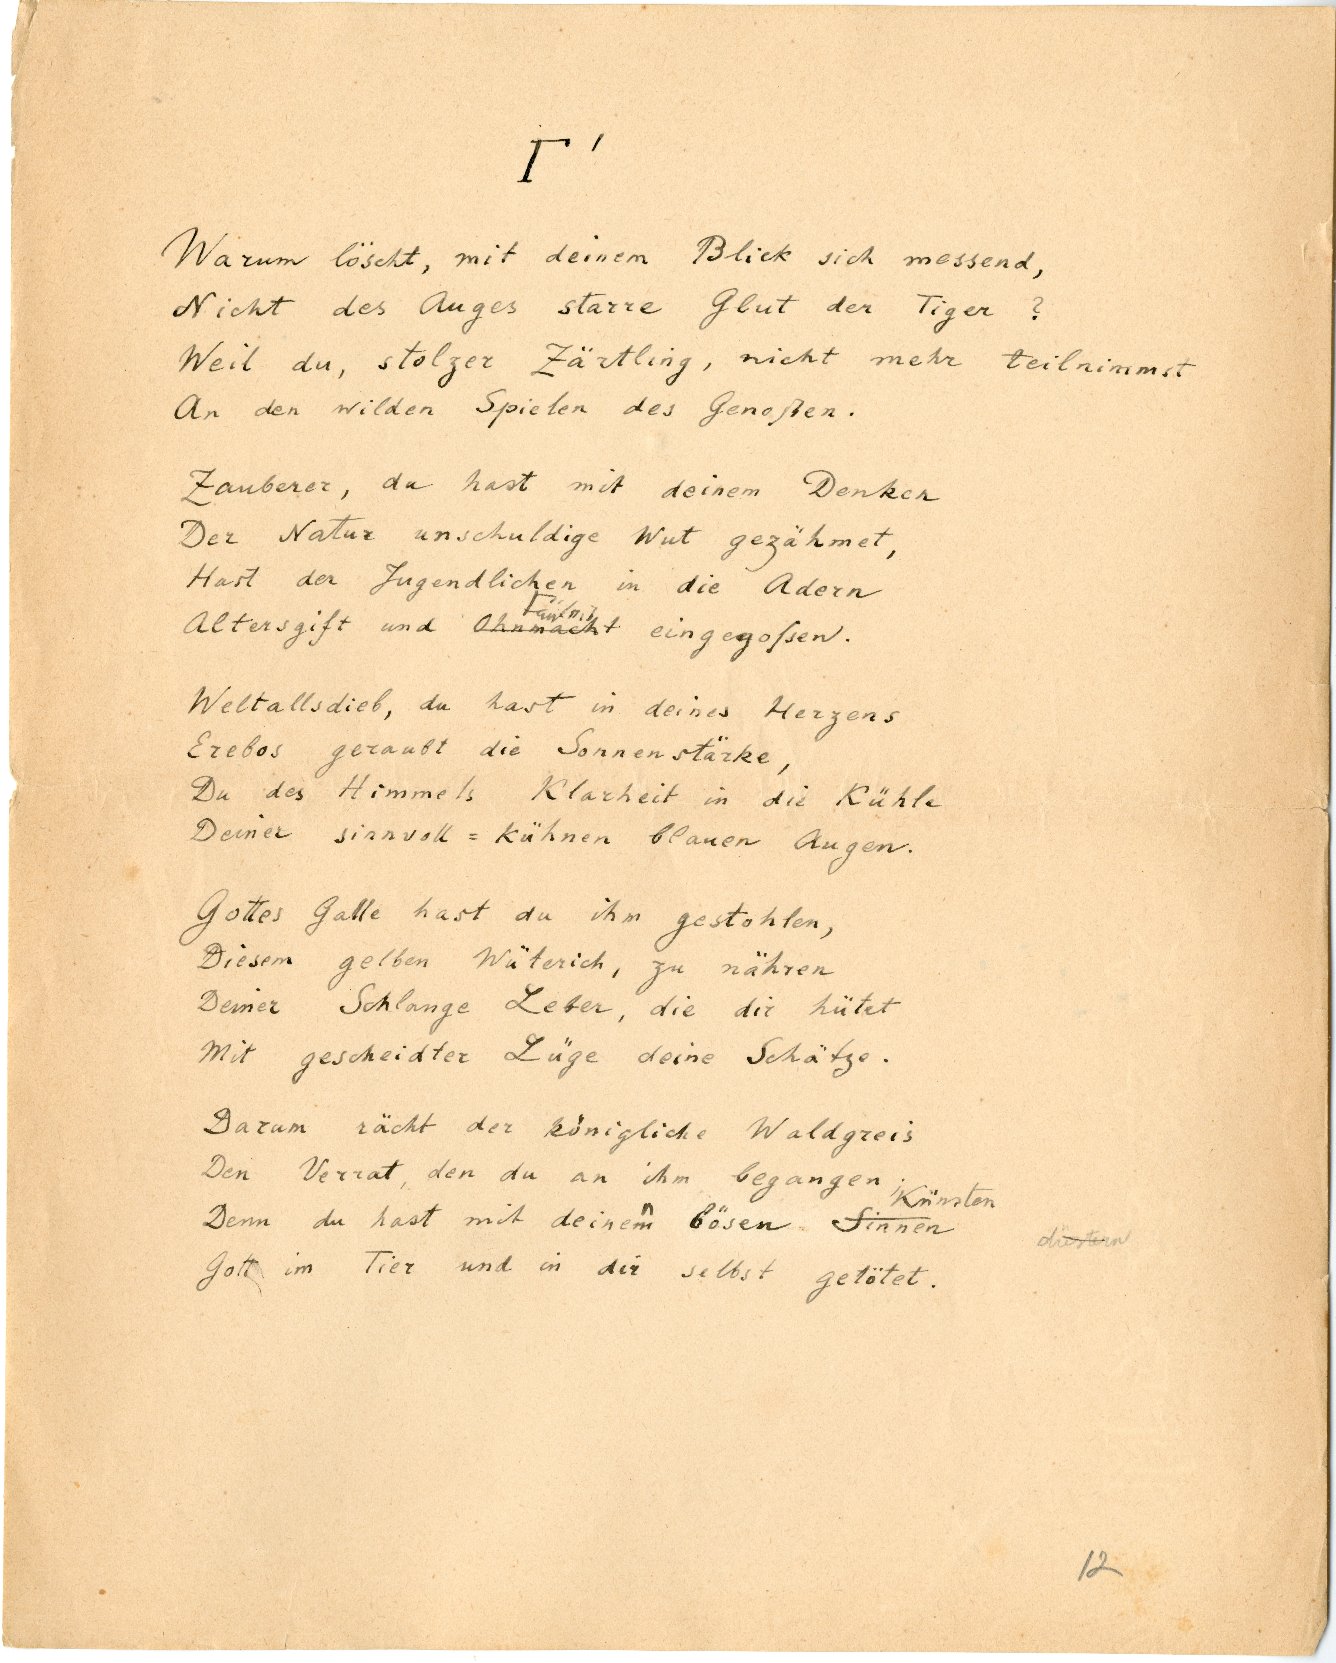 Γ'
Warum löscht, mit deinem Blick sich messend,
Nicht des Auges starre Glut der Tiger?
Weil du, stolzer Zärtling, nicht mehr teilnimmst
An den wilden Spielen des Genoßen.
Zauberer, du hast mit deinem Denken
Der Natur unschuldige Wut gezähmet,
Hast der Jugendlichen in die Adern
Fäulnis
Altersgift und Ohnmacht eingegoßen.
Weltallsdieb, du hast in deines Herzens
Erebos geraubt die Sonnenstärke,
Du des Himmels Klarheit in die Kühle
Deiner sinnvoll = kühnen blauen Augen.
Gottes Galle hast du ihm gestohlen,
Diesem gelben Wüterich, zu nähren
Deiner Schlange Leber, die dir hütet
Mit gescheidter Lüge deine Schätze.
Darum rächt der königliche Waldgreis
Den Verrat, den du an ihm begangen;
Künsten
Denn du hast mit deinen bösen Sinnen düstern
Gott im Tier und in dir selbst getötet.
12